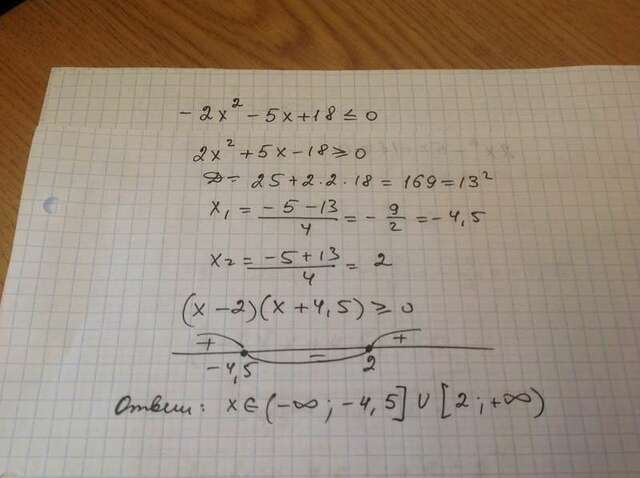 -2x² - 5x + 18 ≤ 0
2x² + 5x - 18 ≥ 0
D = 25 + 2·2·18 = 169 = 13²
x₁ = (-5 - 13)/4 = -9/2 = -4,5
x₂ = (-5 + 13)/4 = 2
(x - 2)(x + 4,5) ≥ 0
+ - +
-4,5 2
Ответ: x ∈ (-∞; -4,5] ∪ [2; +∞)